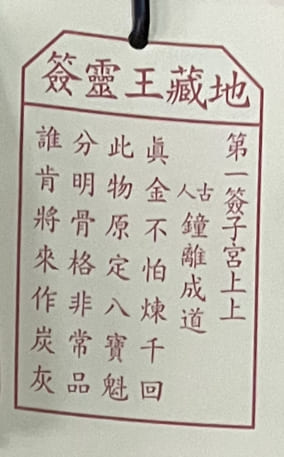 地藏王靈簽
第一簽子宮上上
古人鐘離成道
眞金不怕煉千回
此物原定八寶魁
分明骨格非常品
誰肯將來作炭灰